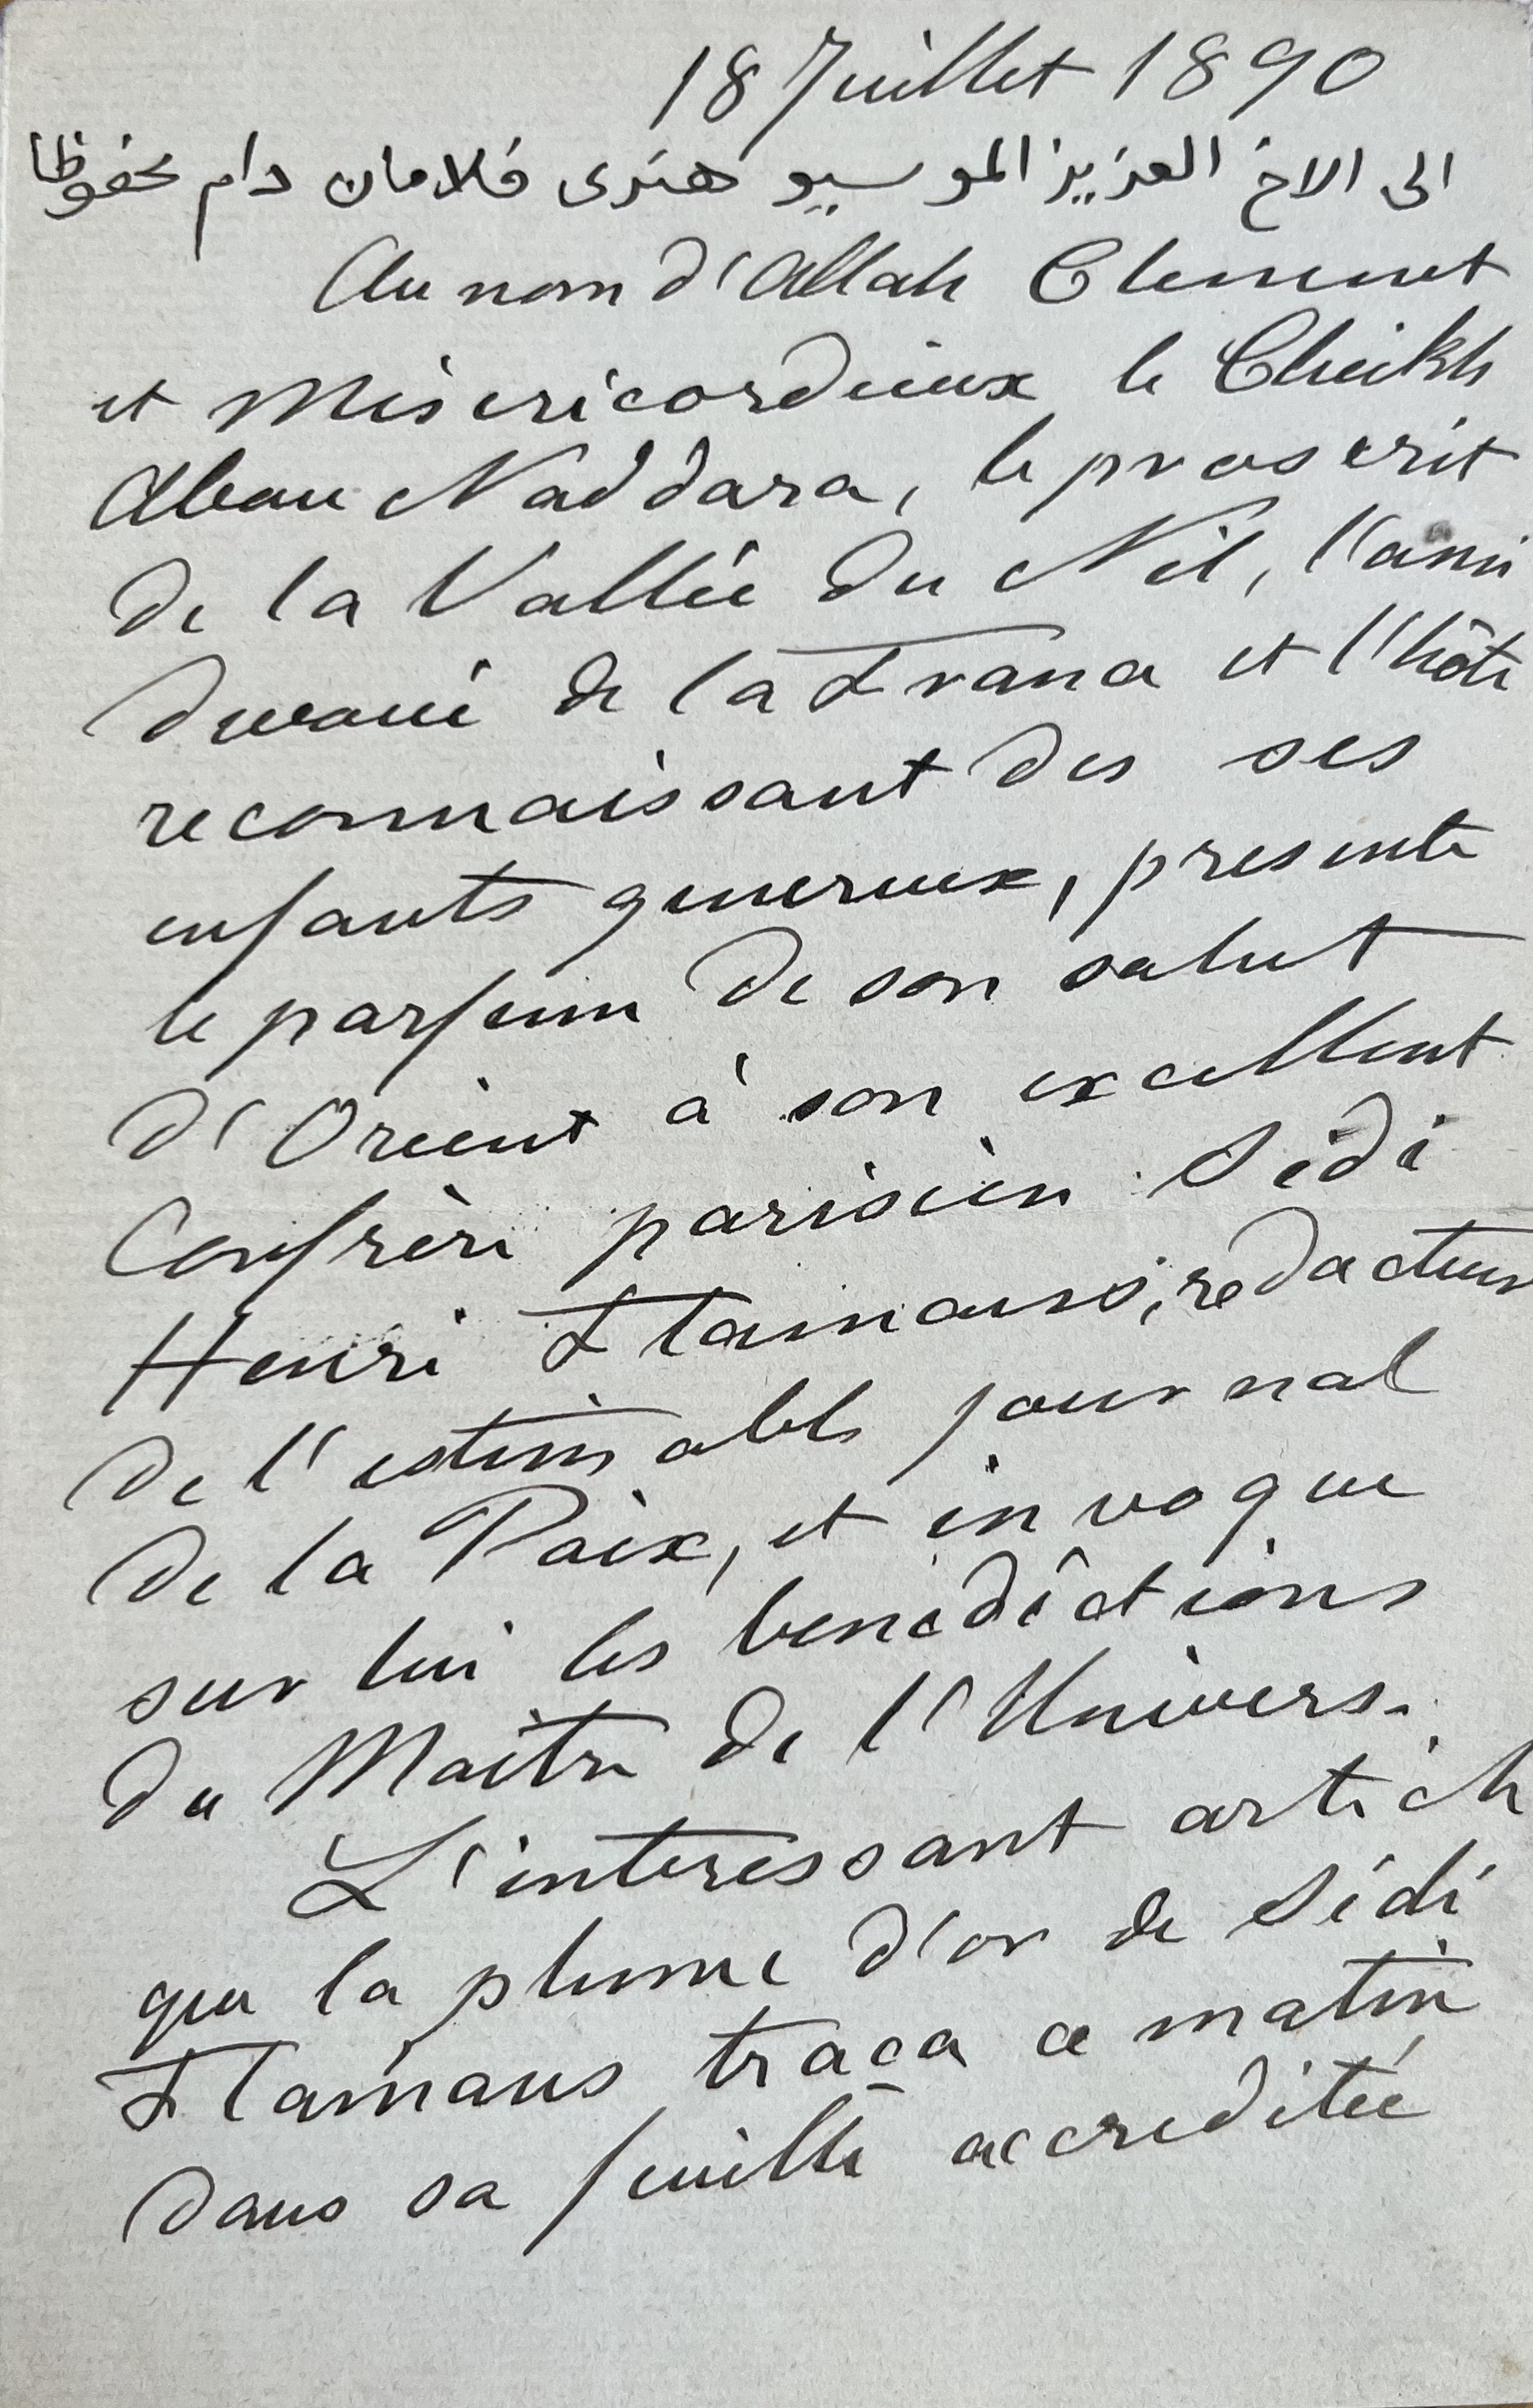 18 Juillet 1890
الى الاخ العزيز الموسيو هنرى فلامان دام محفوظا
Au nom d'Allah Clement
et Misericordieux le Cheikh
Abou Naddara, le proscrit
de la Vallée du Nil, l'ami
devoué de la France et l'hôte
reconnaissant des ses
enfants genereux, presente
le parfum de son salut
d'Orient à son excellent
Confrère parisien Sidi
Henri Flamans, redacteur
de l'estimable journal
de la Paix, et invoque
sur lui les benedictions
du Maitre de l'Univers.
L'interessant article
que la plume d'or de Sidi
Flamans traça ce matin
dans sa feuille accreditée